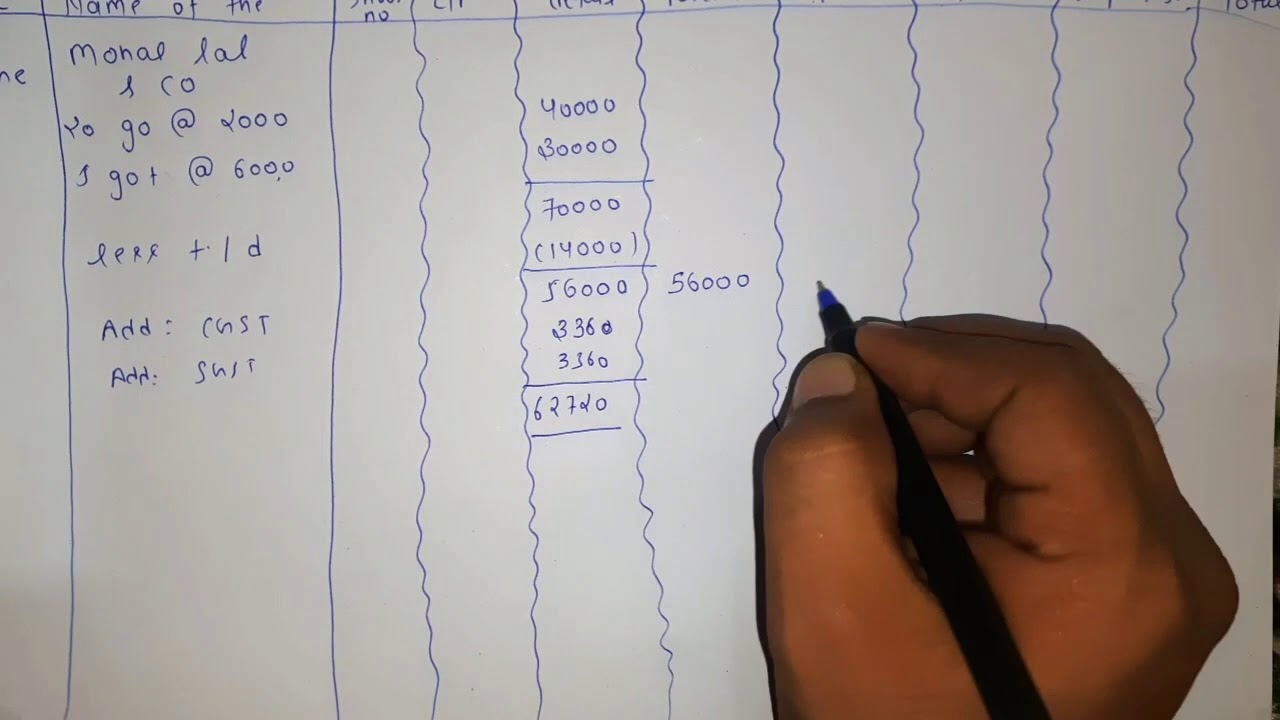 Name of the no Total
ne
Monal lal
& CO
20 go @ 2000 40000
5 got @ 6000 30000
70000
less t.l d (14000)
56000 56000
Add: CGST 3360
Add: SGST 3360
62720